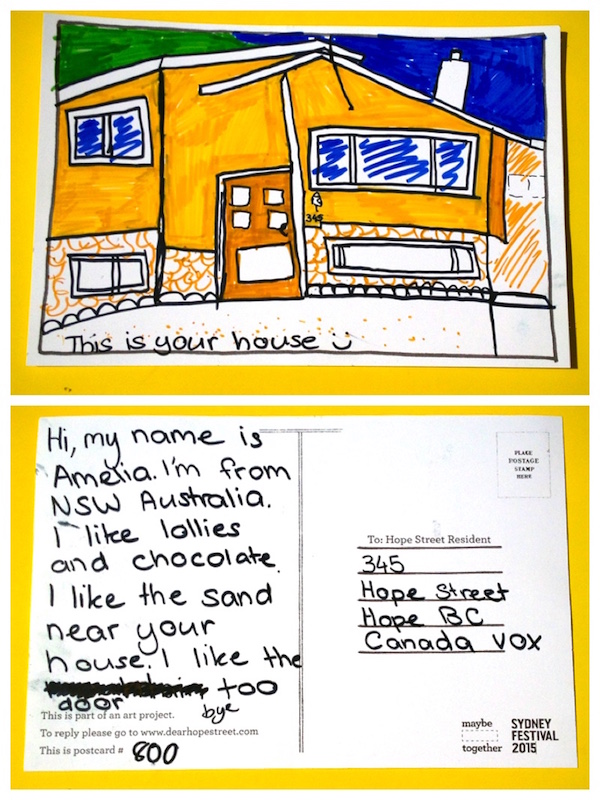 345
This is your house
Hi, my name is
Amelia. I'm from
NSW Australia.
I like lollies
and chocolate.
I like the sand
near your
house. I like the
too
door
bye
This is part of an art project.
To reply please go to www.dearhopestreet.com
This is postcard # 800
PLACE
POSTAGE
STAMP
HERE
To: Hope Street Resident
345
Hope Street
Hope BC
Canada VOX
maybe
together
SYDNEY
FESTIVAL
2015